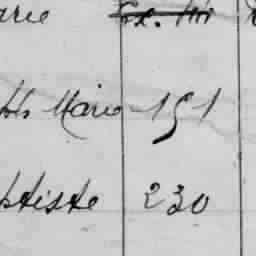 arie
Marie 151
ptiste 230